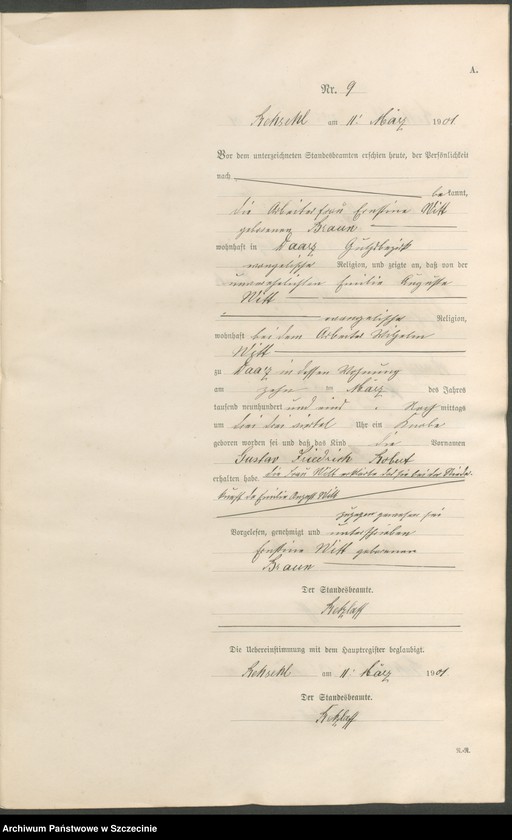 A.
Nr. 9
am 11. März 1901
Vor dem unterzeichneten Standesbeamten erschien heute, der Persönlichkeit
nach
bekannt,
die Arbeiterfrau Ernstine Witt
geborenen Braun
wohnhaft in Daarz Gutsbezirk
evangelische Religion, und zeigte an, daß von der
unverehelichten Emilie Auguste
Witt
evangelischer Religion,
wohnhaft bei dem Arbeiter Wilhelm
Witt
zu Daarz in dessen Wohnung
am zehn ten März des Jahres
tausend neunhundert und eins Nachmittags
um drei viertel Uhr ein Knabe
geboren worden sei und daß das Kind die Vornamen
Gustav Friedrich Robert
erhalten habe. Die Frau Witt erklärte daß sie bei der Nieder-
kunft der Emilie August Witt
zugegen gewesen sei
Vorgelesen, genehmigt und unterschrieben
Ernstine Witt geborenen
Braun
Der Standesbeamte.
Die Uebereinstimmung mit dem Hauptregister beglaubigt.
am 11. März 1901
Der Standesbeamte.
Archiwum Państwowe w Szczecinie